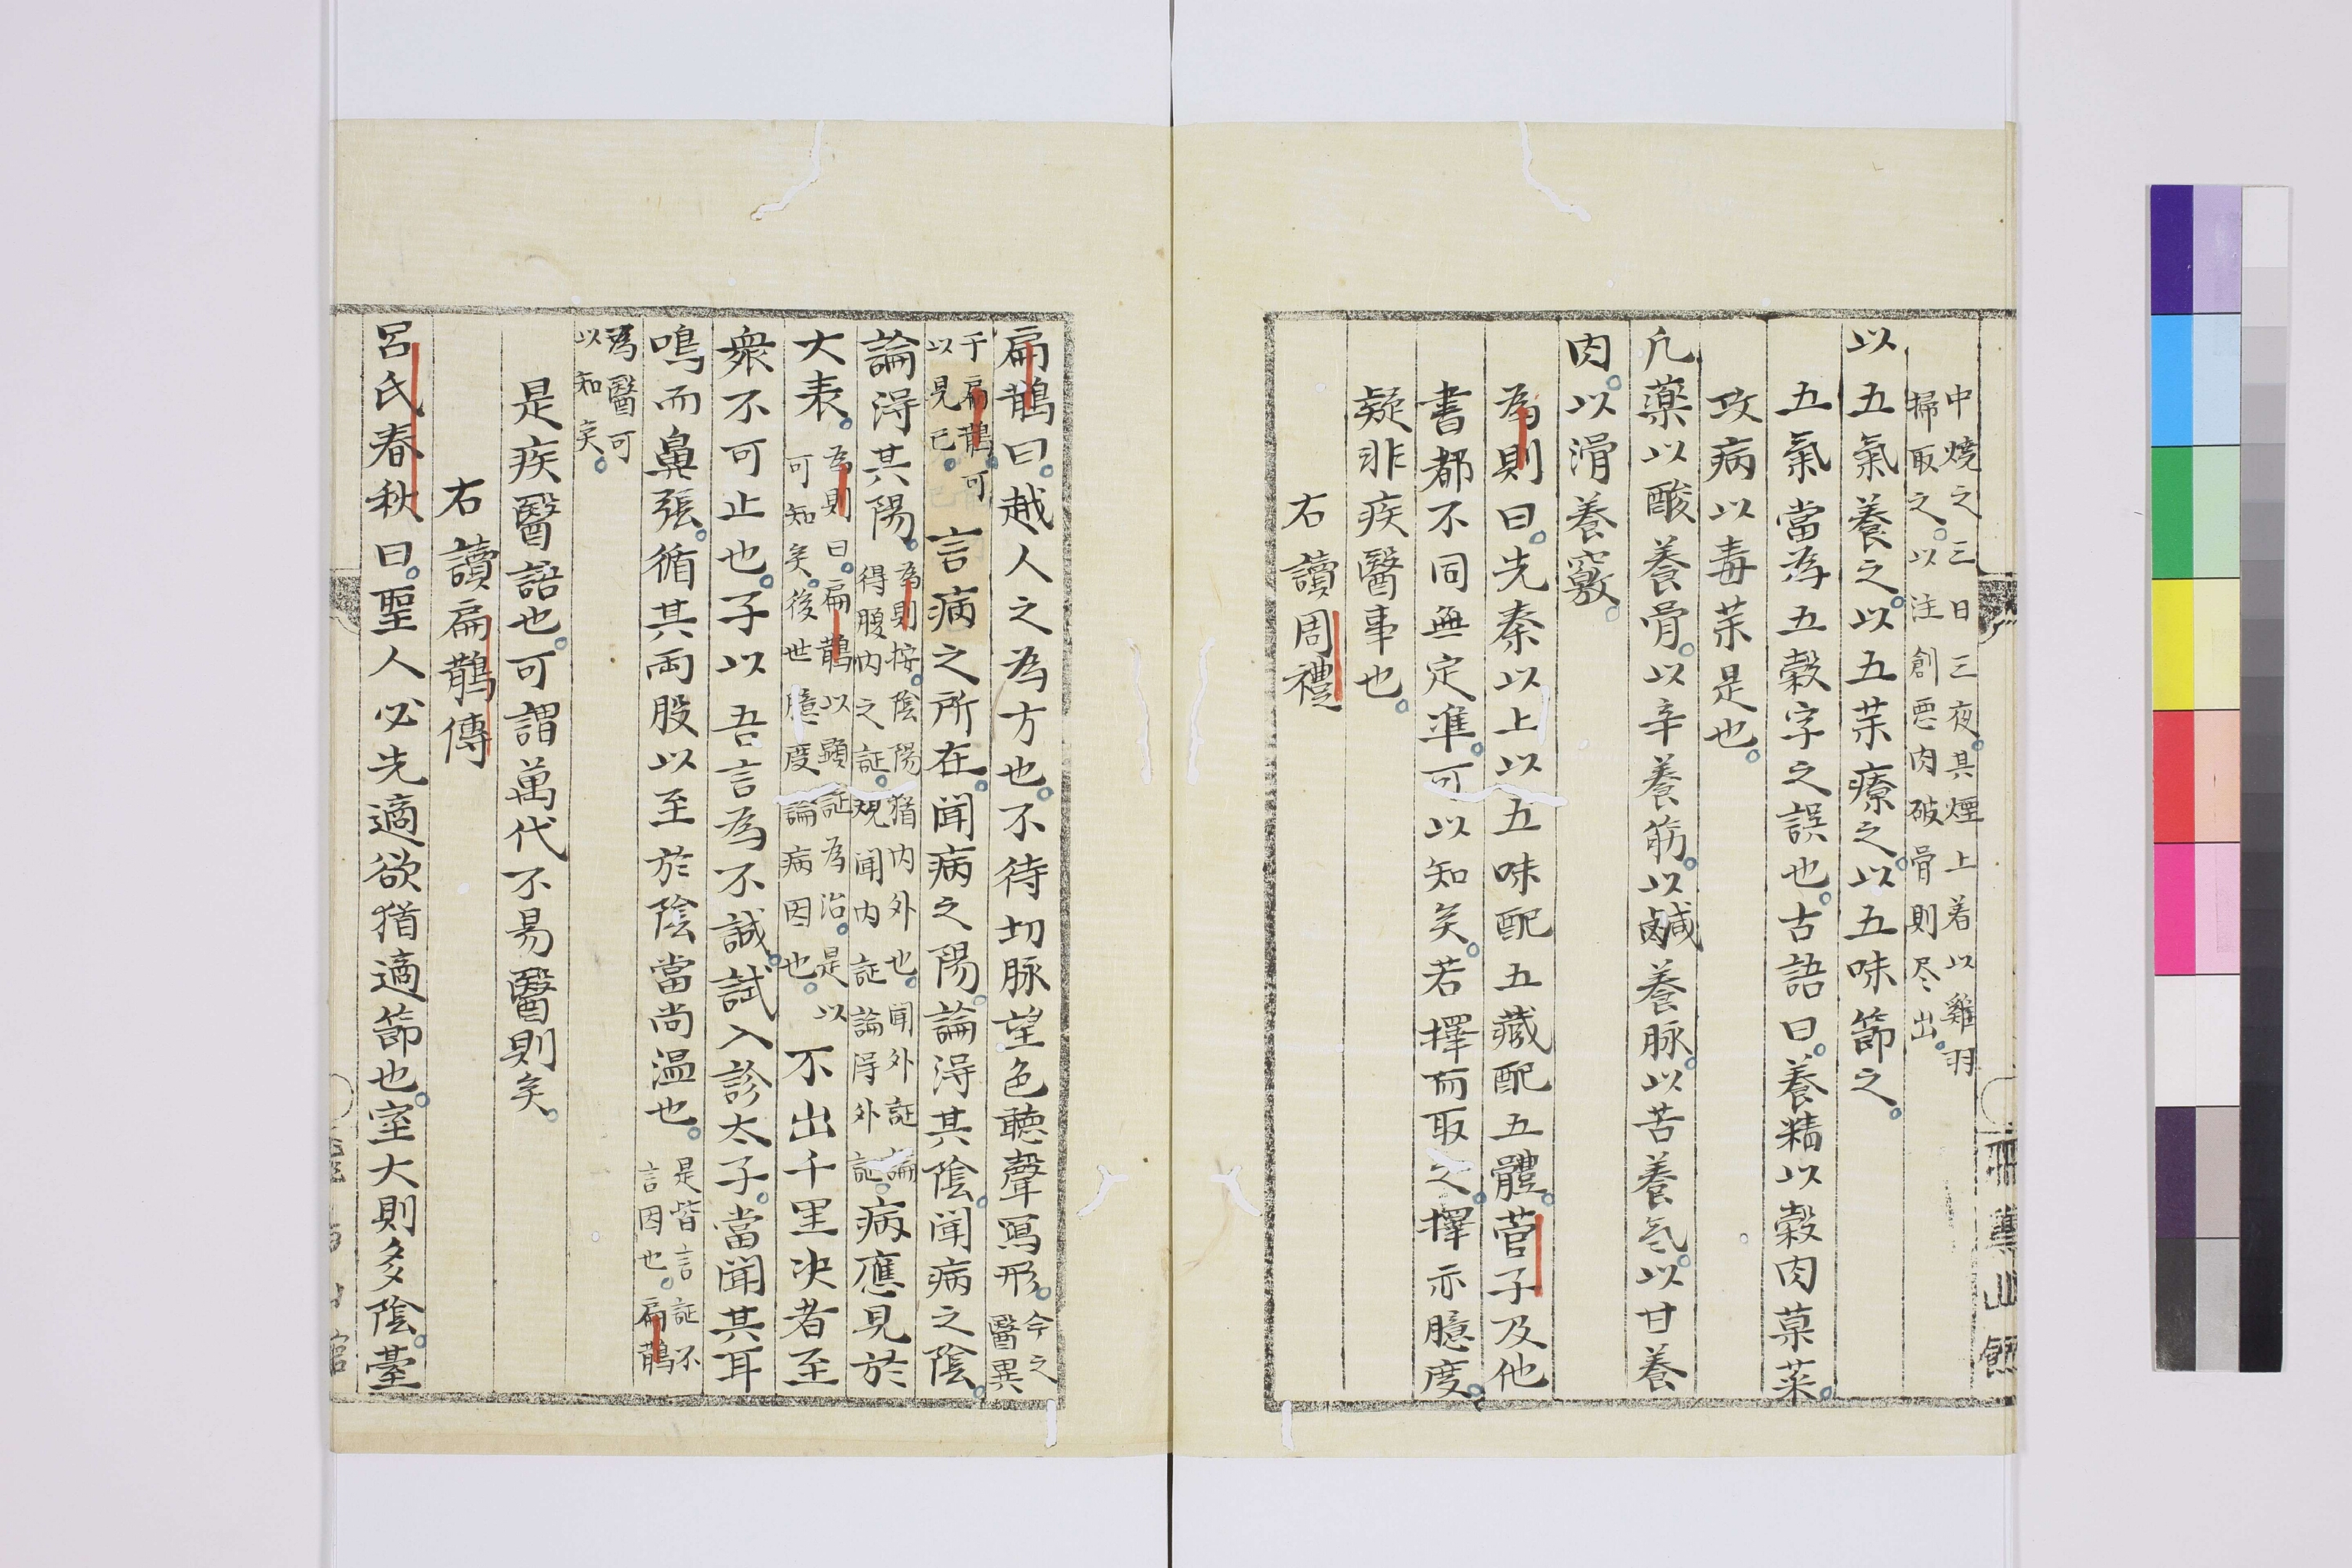 中燒之三日三夜。其煙上着以雞羽
掃取之。以注創悪肉破骨則尽出。
以五氣養之。以五茱療之。以五味節之。
五氣當為五穀字之誤也。古語曰。養精以穀肉菓菜。
攻病以毒茱是也。
凢藥以酸養骨。以辛養筋。以鹹養脉。以苦養気。以甘養
肉。以滑養竅。
為則曰。先秦以上以五味配五藏配五體。菅子及他
書都不同無定準。可以知矣。若擇而取之。擇亦臆度。
疑非疾醫事也。
右讀周禮
扁鵲曰。越人之為方也。不待切脉望色聴聲寫形。今之
醫異
于扁鵲。可
以見已。
言病之所在。聞病之陽。論淂其陰。聞病之陰。
論淂其陽。為則按。陰陽猶内外也。聞外証論
得腹内之証。聞内証論得外証。病應見於
大表。為則曰。扁鵲以顕証為治。是以
可知矣。後世臆度論病因也。不出千里决者至
衆不可止也。子以吾言為不誠。試入診太子。當聞其耳
鳴而鼻張。循其両股以至於陰當尚温也。是皆言証不
言因也。扁鵲
為醫可
以知矣。
是疾醫語也。可謂萬代不易醫則矣。
右讀扁鵲傳
呂氏春秋曰。聖人必先適欲猶適節也。室大則多陰。臺